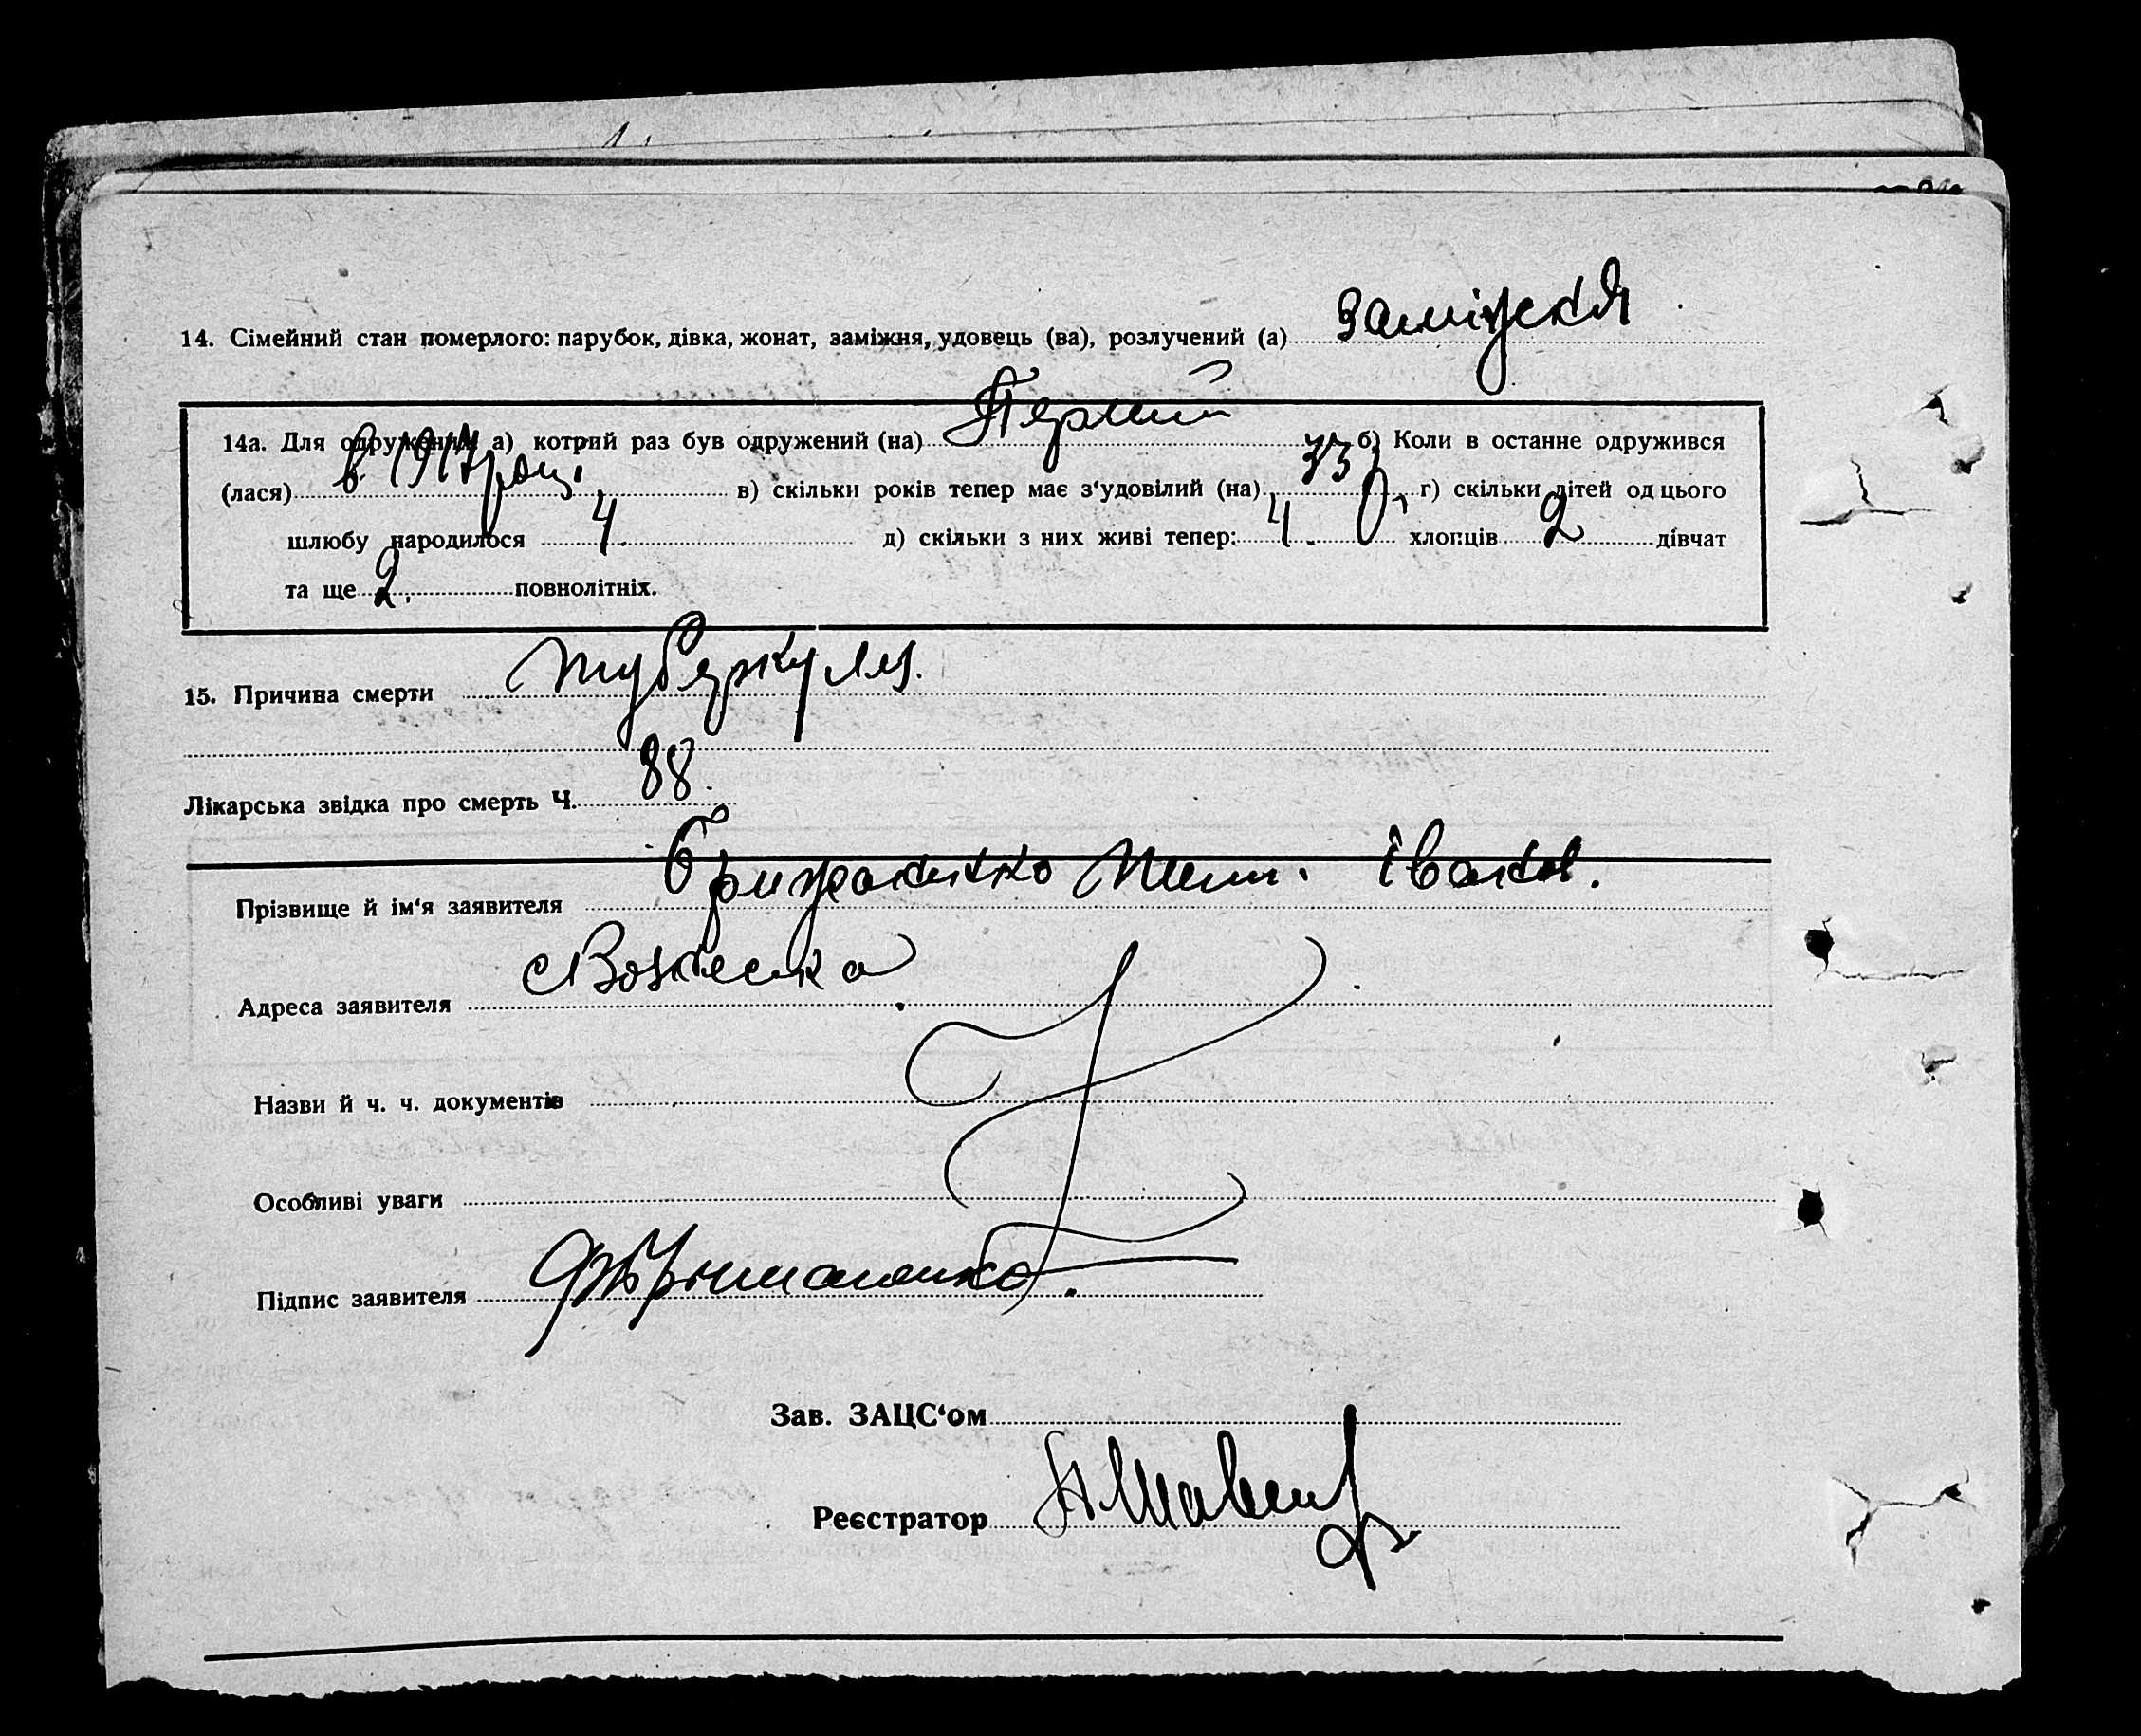 14. Сімейний стан померлого: парубок, дівка, жонат, заміжня, удовець (ва), розлучений (а) Заміжня
14а. Для одруження а) котрий раз був одружений (на) Первий б) Коли в останне одружився
(лася) в 1917 році, в) скільки років тепер має з‘удовілий (на) 33 г) скільки дітей од цього
шлюбу народилося 4. д) скільки з них живі тепер: 4. хлопців 2 дівчат
та ще 2. повнолітніх.
15. Причина смерти туберкульоз.
Лікарська звідка про смерть Ч. 88.
Прізвище й ім‘я заявителя Іванов.
Адреса заявителя
Назви й ч. ч. документів
Особливі уваги
Підпис заявителя
Зав. ЗАЦС‘ом
Реєстратор